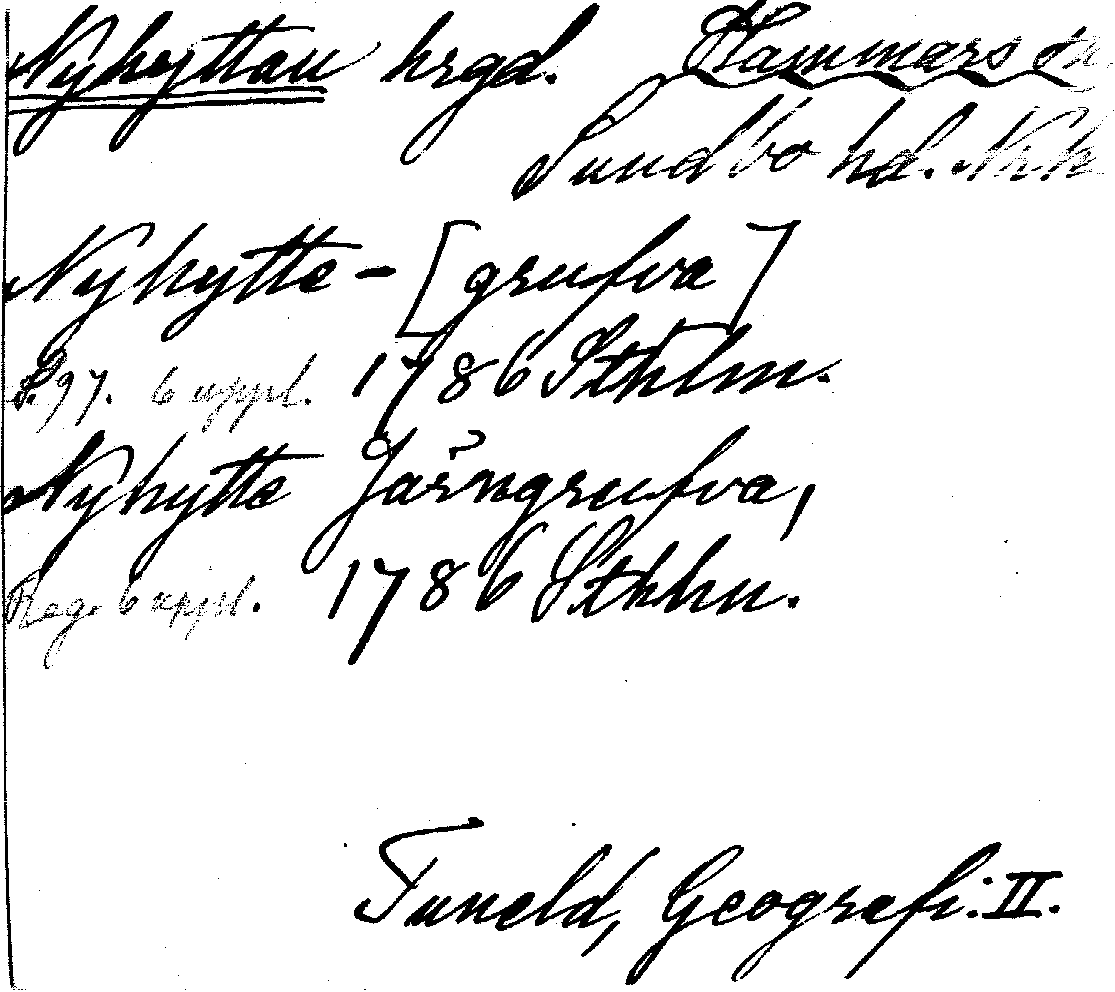 Nyhyttan hrgd. Hammars sn
Sundbo hd. Nrk
Nyhytte - [grufva]
S. 97. 6 uppl. 1786 Sthlm.
Nyhytte Järngrufva,
Reg. 6 uppl. 1786 Sthlm.
Tuneld, Geografi. II.